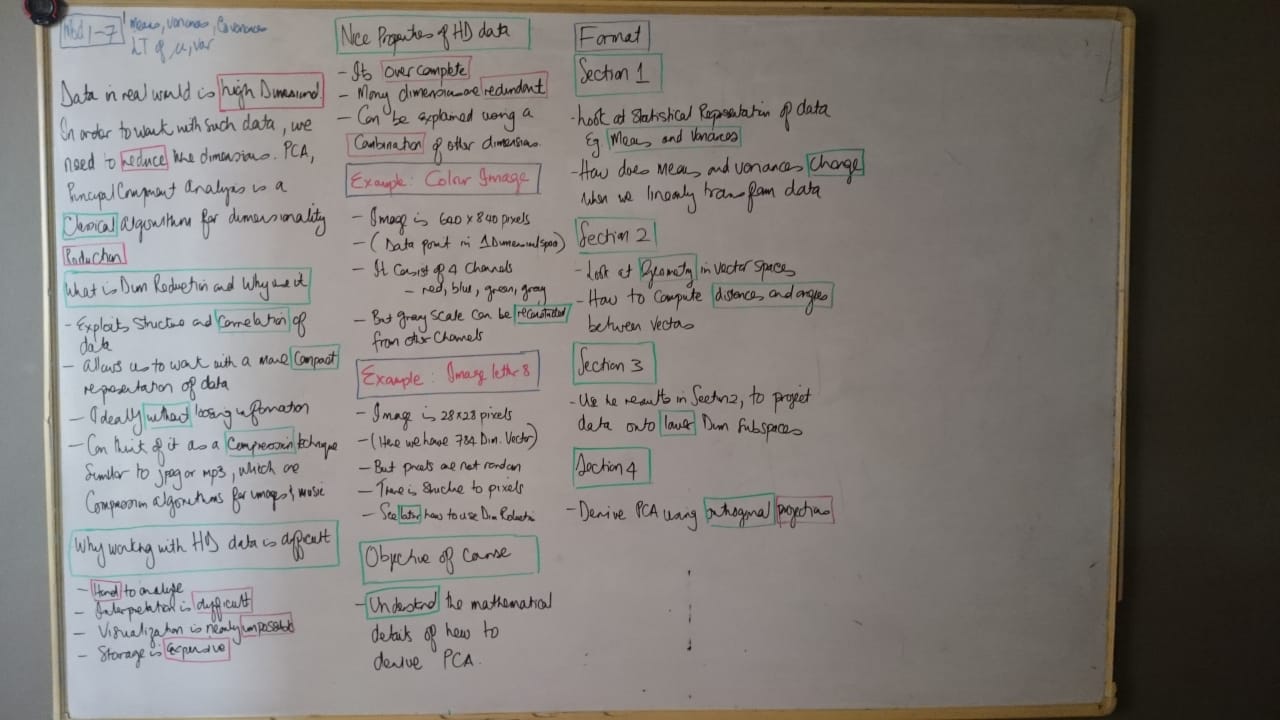 Mod 1-7 Means, Variances, Covariances
LT of μ, var
Data in real world is high Dimensional
In order to work with such data, we
need to reduce the dimensions. PCA,
Principal Component Analysis is a
Classical algorithm for dimensionality
Reduction
What is Dim Reduction and Why use it
- Exploits Structure and Correlation of
data
- allows us to work with a more Compact
representation of data
- Ideally without losing information
- Can think of it as a Compression technique
Similar to jpeg or mp3, which are
Compression algorithms for images & music
Why working with HD data is difficult
- Hard to analyse
- Interpretation is difficult
- Visualization is nearly impossible
- Storage is expensive
Nice Properties of HD data
- Its over complete
- Many dimensions are redundant
- Can be explained using a
Combination of other dimensions.
Example: Colour Image
- Image is 640 x 840 pixels
- (Data point in 1 Dimensional space)
- It Consist of 4 Channels
- red, blue, green, gray
- But gray scale can be reconstructed
from other Channels
Example: Image letter 8
- Image is 28x28 pixels
- (Here we have 784 Dim. Vector)
- But pixels are not random
- There is Structure to pixels
- See later how to use Dim Reduction
Objective of Course
- Understand the mathematical
details of how to
derive PCA.
Format
Section 1
- Look at Statistical Representation of data
Eg Means and Variances
- How does Means and variances Change
when we linearly transform data
Section 2
- Look at Geometry in vector spaces
- How to Compute distances and angles
between Vectors
Section 3
- Use the results in Section 2, to project
data onto lower Dim Subspaces
Section 4
- Derive PCA using orthogonal projections